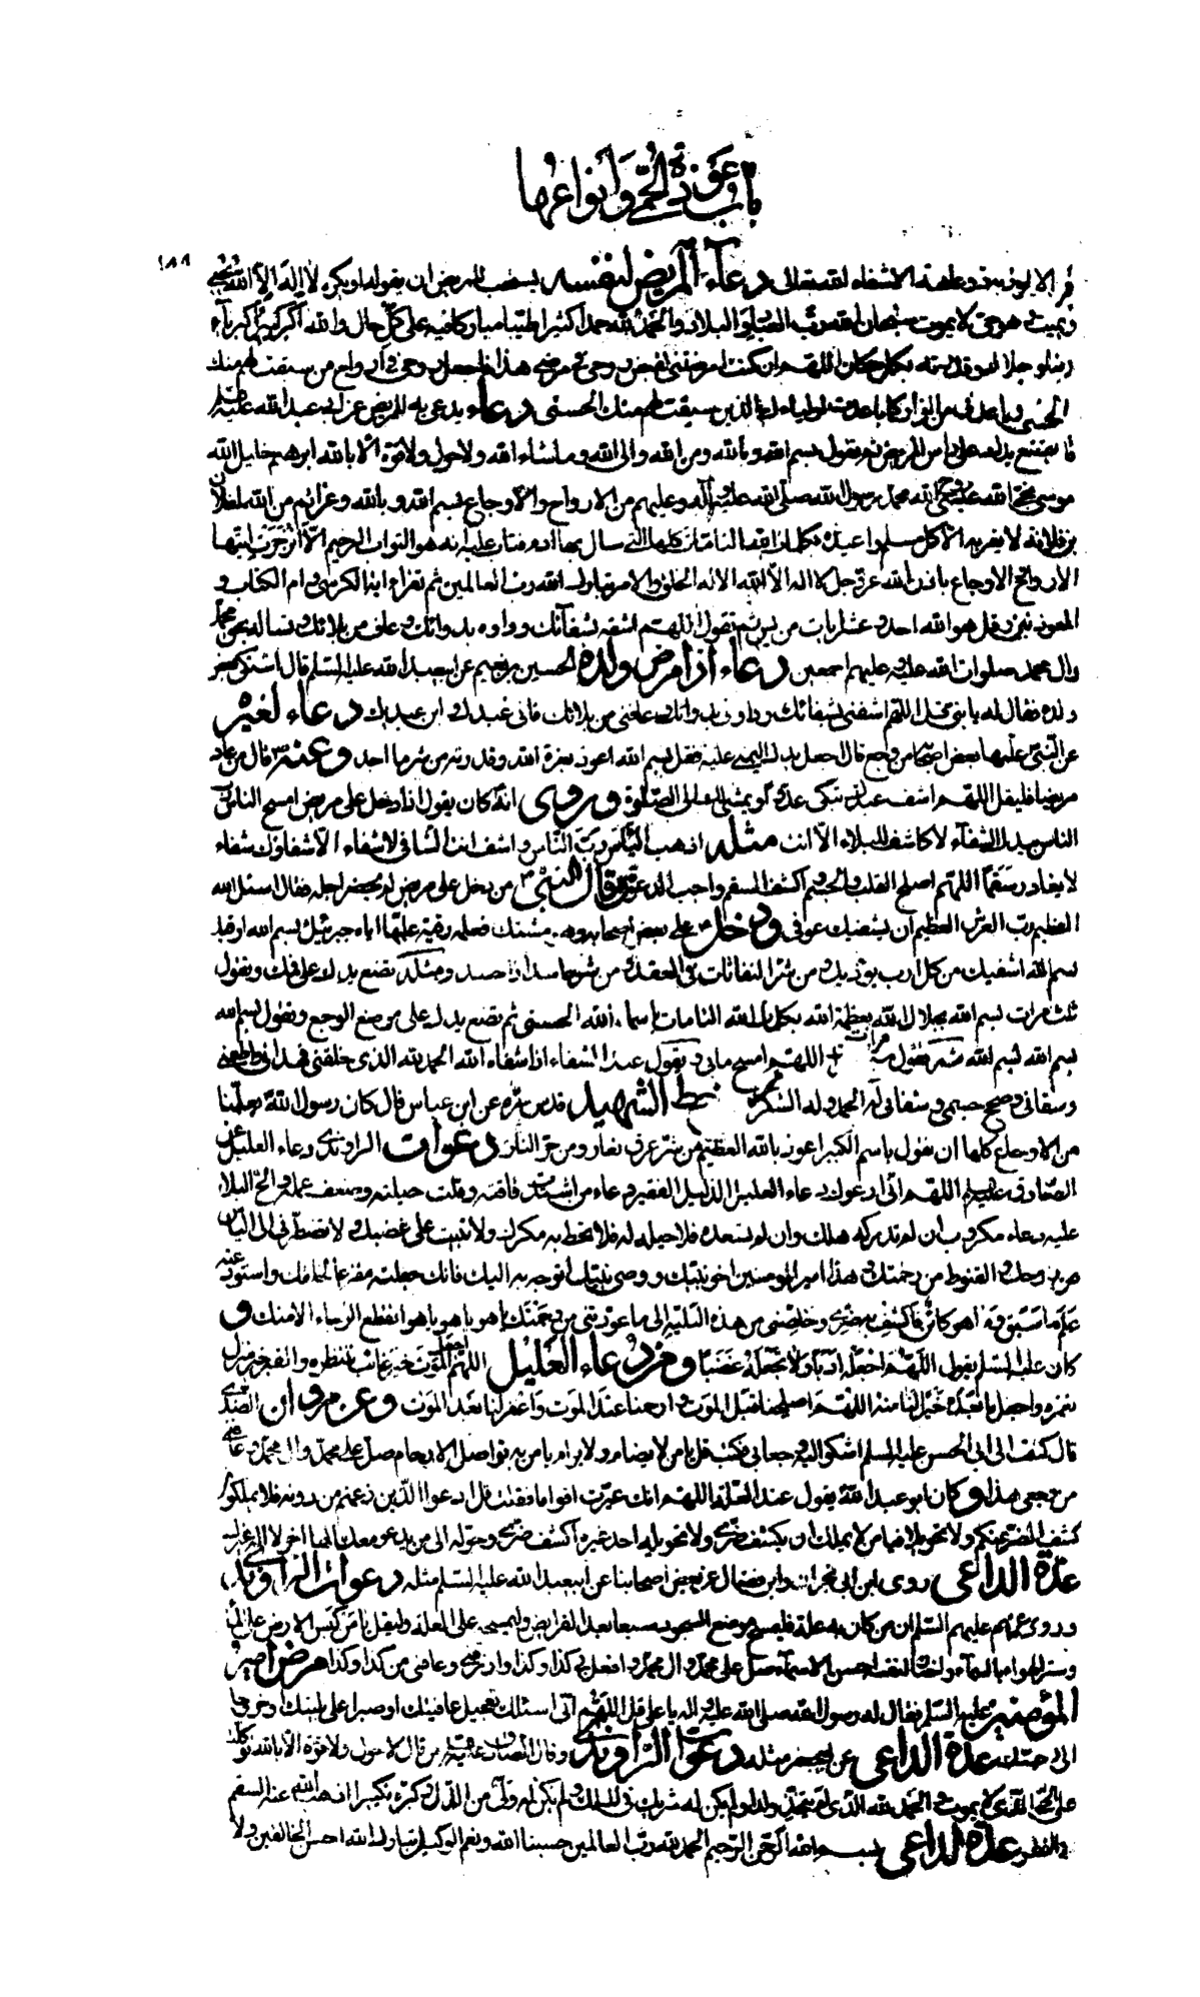 باب عوذة الحمى وأنواعها
١٨٨
دعاء المريض لنفسه يستحب للمريض ان يقوله ويكرره لا اله الا الله يحيي
ويميت وهو حي لا يموت سبحان الله رب العباد والبلاد والحمد لله حمدا كثيرا طيبا مباركا فيه على كل حال والله اكبر كبيرا كبرياء
ربنا وجلاله وقدرته بكل مكان اللهم ان كنت امرضتني لقبض روحي في مرضي هذا فاجعل روحي في ارواح من سبقت لهم منك
الحسنى وباعدني من النار كما باعدت اولياءك الذين سبقت لهم منك الحسنى دعاء يدعى به للمريض عن ابي عبد الله عليه السلام
قال تضع يدك على راس المريض ثم تقول بسم الله وبالله ومن الله والى الله وما شاء الله ولا حول ولا قوة الا بالله ابرهيم خليل الله
موسى نجي الله عيسى روح الله محمد رسول الله صلى الله عليه وآله وعليهم من الارواح والاوجاع بسم الله وبالله وعزائم من الله لفلان
بن فلانة لا يقربه الا كل مسلم واعيذه بكلمات الله التامات كلها التي سال بها ادم فتاب عليه انه هو التواب الرحيم الا انزجرت ايتها
الارواح والاوجاع باذن الله عز وجل لا اله الا الله الا له الخلق والامر تبارك الله رب العالمين ثم تقرا ام الكتاب و اية الكرسي
المعوذتين وقل هو الله احد وعشر ايات من يس ثم تقول اللهم اشفه بشفائك وداوه بدوائك وعافه من بلائك وتساله بحق محمد
وال محمد صلوات الله عليه وعليهم اجمعين دعاء اذا مرض ولده الحسين بن نعيم عن ابي عبد الله عليه السلام قال اشتكى بعض
ولده فقال له يا بني قل اللهم اشفني بشفائك وداوني بدوائك وعافني من بلائك فاني عبدك وابن عبديك دعاء لغيره
بعض اصحابه من وجع قال اجعل يدك اليمنى عليه فقل بسم الله اعوذ بعزة الله وقدرته من شر ما اجد وعنه قال من عاد
مريضا فليقل اللهم اشف عبدك ينكى عدوك او يمشي لك الى الصلوة وروى انه كان يقول اذا دخل على مريض امسح الباس رب
الناس بيدك الشفاء لا كاشف للبلاء الا انت مثله اذهب الباس رب الناس واشف انت الشافي لا شفاء الا شفاؤك شفاء
لا يغادر سقما اللهم اصلح القلب والجسم واكشف السقم واجب الدعوة وقال النبي من دخل على مريض لم يحضر اجله فقال اسئل الله
العظيم رب العرش العظيم ان يشفيك عوفي ودخل على بعض اصحابه وهو مشتك فعلمه رقية علمها اياه جبرئيل بسم الله ارقيك
بسم الله اشفيك من كل ارب يؤذيك ومن شر النفاثات في العقد ومن شر حاسد اذا حسد ومثله تضع يدك على فمك وتقول
ثلث مرات بسم الله بجلال الله بعظمة الله بكلمات الله التامات باسماء الله الحسنى ثم تضع يدك على موضع الوجع وتقول بسم الله
بسم الله بسم الله ثم تقول مرات اللهم امسح ما بي وتقول عند الشفاء اذا شفاه الله الحمد لله الذي خلقني فهداني واطعمني
وسقاني وصحح جسمي وشفاني له الحمد وله الشكر بخط الشهيد قدس سره عن ابن عباس قال كان رسول الله يعلمنا
من الاوجاع كلها ان نقول باسم الكبير اعوذ بالله العظيم من شر عرق نعار ومن حر النار دعوات الراوندي دعاء العليل عن
الصادق عليه السلام اللهم اني ادعوك دعاء العليل الذليل الفقير دعاء من اشتدت فاقته وقلت حيلته وضعف عمله والح البلاء
عليه دعاء مكروب ان لم تدركه هلك وان لم تسعده فلا حيلة له فلا تحط به مكرك ولا تبيت على غضبك ولا تضطرني الى الياس
من روحك والقنوط من رحمتك هذا امير المؤمنين اخو نبيك ووصي نبيك اتوجه به اليك فانك جعلته مفزعا لخلقك واستودعته
علم ما سبق وما هو كائن فاكشف به ضري وخلصني من هذه البلية الى ما عودتني من رحمتك يا هو يا هو يا هو انقطع الرجاء الا منك و
كان عليه السلم يقول اللهم اجعله ادبا ولا تجعله غضبا ومن دعاء العليل اللهم اجعل الموت خير غائب ننتظره والقبر خير منزل
نعمره واجعل ما بعده خيرا لنا منه اللهم اصلحنا قبل الموت وارحمنا عند الموت واغفر لنا بعد الموت وعن مروان العبدي
قال كتبت الى ابي الحسن عليه السلم اشكو اليه وجعا بي فكتب قل يا من لا يضام ولا يرام يا من به تواصل الارحام صل على محمد وال محمد وعافني
من وجعي هذا وكان ابو عبد الله يقول عند العلة اللهم انك عيرت اقواما فقلت قل ادعوا الذين زعمتم من دونه فلا يملكون
كشف الضر عنكم ولا تحويلا فيا من لا يملك كشف ضري ولا تحويله احد غيره اكشف ضري وحوله الى من يدعو معك الها اخر لا اله غيرك
عدة الداعي روى ابن ابي نجران وابن فضال عن بعض اصحابنا عن ابي عبد الله عليه السلم مثله دعوات الراوندي
وروى عنهم عليهم السلم ان من كان به علة فليمسح موضع السجود سبعا بعد الفرايض وليمسحه على العلة وليقل يا من كبس الارض على الماء
وسد الهواء بالسماء واختار لنفسه احسن الاسماء صل على محمد وال محمد وافعل بي كذا وكذا وارزقني وعافني من كذا وكذا مرض امير
المؤمنين عليه السلم فقال له رسول الله صلى الله عليه واله يا علي قل اللهم اني اسئلك تعجيل عافيتك او صبرا على بليتك او خروجا
الى رحمتك عدة الداعي عن ابي جعفر مثله دعوات الراوندي وقال الصادق عليه السلم من قال لا حول ولا قوة الا بالله توكلت
على الحي الذي لا يموت والحمد لله الذي لم يتخذ ولدا ولم يكن له شريك في الملك ولم يكن له ولي من الذل وكبره تكبيرا اذهب الله عنه السقم
والفقر عدة الداعي بسم الله الرحمن الرحيم الحمد لله رب العالمين حسبنا الله ونعم الوكيل تبارك الله احسن الخالقين ولا